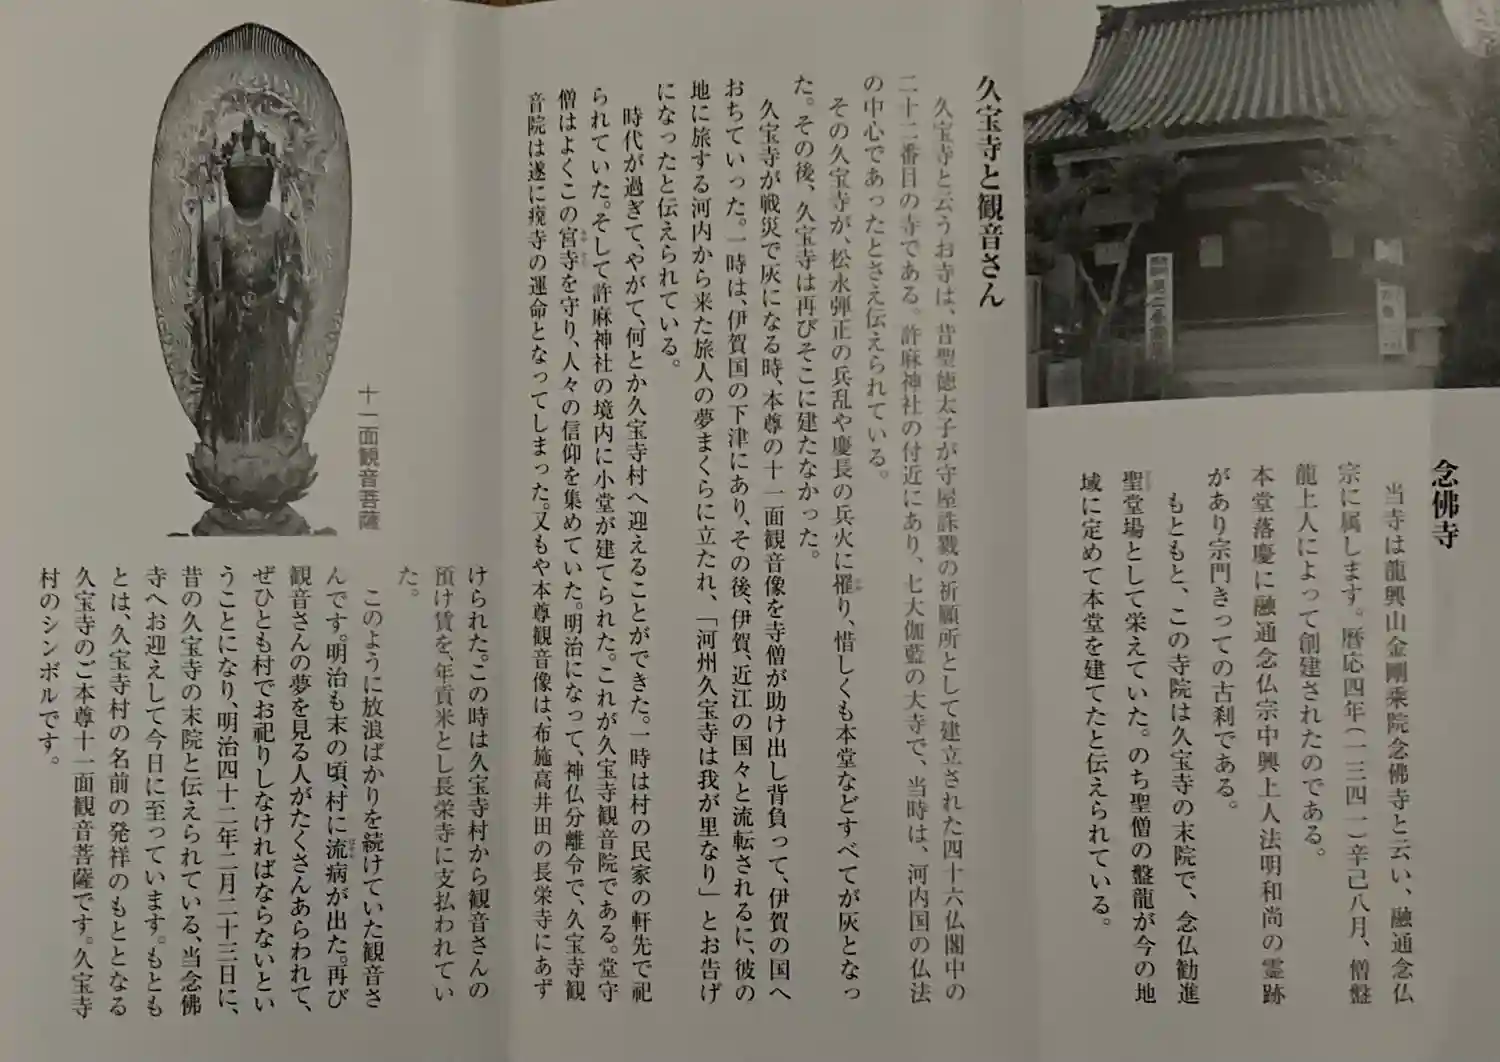 念佛寺
当寺は龍興山金剛乘院念佛寺と云い、融通念仏
宗に属します。暦応四年(一三四一)辛己八月、僧盤
龍上人によって創建されたのである。
本堂落慶に融通念仏宗中興上人法明和尚の霊跡
があり宗門きっての古刹である。
もともと、この寺院は久宝寺の末院で、念仏勧進
聖堂場として栄えていた。のち聖僧の盤龍が今の地
域に定めて本堂を建てたと伝えられている。
久宝寺と観音さん
久宝寺と云うお寺は、昔聖徳太子が守屋誅戮の祈願所として建立された四十六仏閣中の
二十二番目の寺である。許麻神社の付近にあり、七大伽藍の大寺で、当時は、河内国の仏法
の中心であったとさえ伝えられている。
その久宝寺が、松永弾正の兵乱や慶長の兵火に罹り、惜しくも本堂などすべてが灰となっ
た。その後、久宝寺は再びそこに建たなかった。
久宝寺が戦災で灰になる時、本尊の十一面観音像を寺僧が助け出し背負って、伊賀の国へ
おちていった。一時は、伊賀国の下津にあり、その後、伊賀、近江の国々と流転されるに、彼の
地に旅する河内から来た旅人の夢まくらに立たれ、「河州久宝寺は我が里なり」とお告げ
になったと伝えられている。
時代が過ぎて、やがて、何とか久宝寺村へ迎えることができた。一時は村の民家の軒先で祀
られていた。そして許麻神社の境内に小堂が建てられた。これが久宝寺観音院である。堂守
僧はよくこの宮寺を守り、人々の信仰を集めていた。明治になって、神仏分離令で、久宝寺観
音院は遂に廃寺の運命となってしまった。又もや本尊観音像は、布施高井田の長栄寺にあず
けられた。この時は久宝寺村から観音さんの
預け賃を、年貢米とし長栄寺に支払われてい
た。
このように放浪ばかりを続けていた観音さ
んです。明治も末の頃、村に流病が出た。再び
観音さんの夢を見る人がたくさんあらわれて、
ぜひとも村でお祀りしなければならないとい
うことになり、明治四十二年二月二十三日に、
昔の久宝寺の末院と伝えられている、当念佛
寺へお迎えして今日に至っています。もとも
とは、久宝寺村の名前の発祥のもととなる
久宝寺のご本尊十一面観音菩薩です。久宝寺
村のシンボルです。
十一面観音菩薩